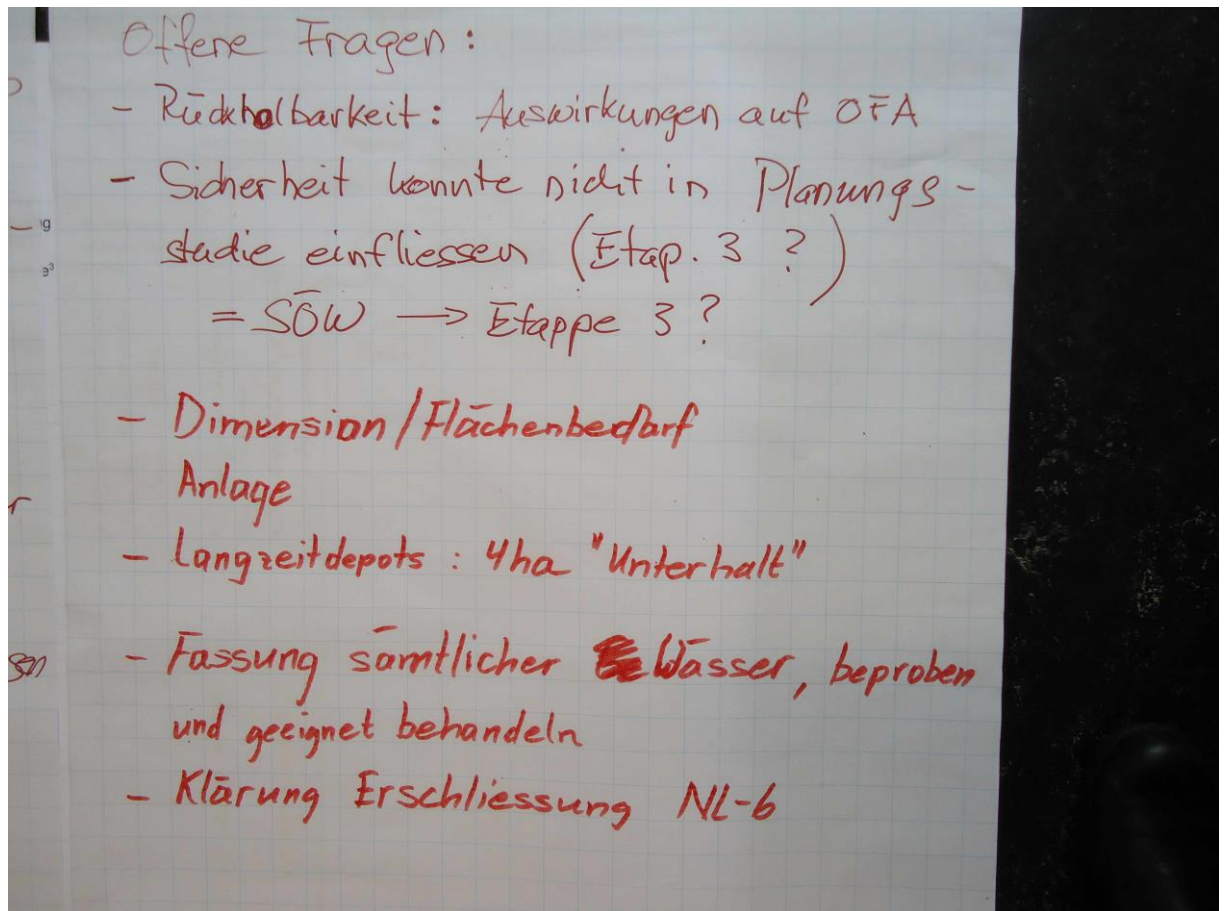 Offene Fragen:
- Rückholbarkeit: Auswirkungen auf OFA
- Sicherheit konnte nicht in Planungs-
studie einfliessen (Etap. 3 ?)
= SÖW → Etappe 3 ?
- Dimension/Flächenbedarf
Anlage
- Langzeitdepots : 4ha "Unterhalt"
- Fassung sämtlicher Wässer, beproben
und geeignet behandeln
- Klärung Erschliessung NL-6